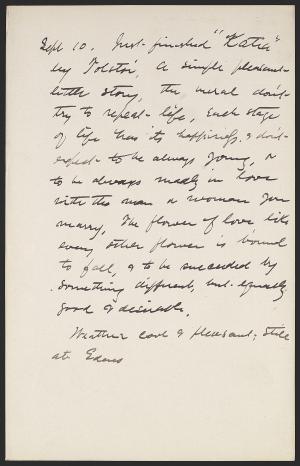 Sept 10. Just finished "Katia"
by Tolstoi, A simple pleasant
little story, the moral don't
try to repeat life, each stage
of life has its happiness. & don't
expect to be always young, or
to be always madly in love
with the man or woman you
marry, The flower of love like
every other flower is bound
to fall, & to be succeeded by
something different, but equally
good & desirable.
Weather cool & pleasant; still
at Edens